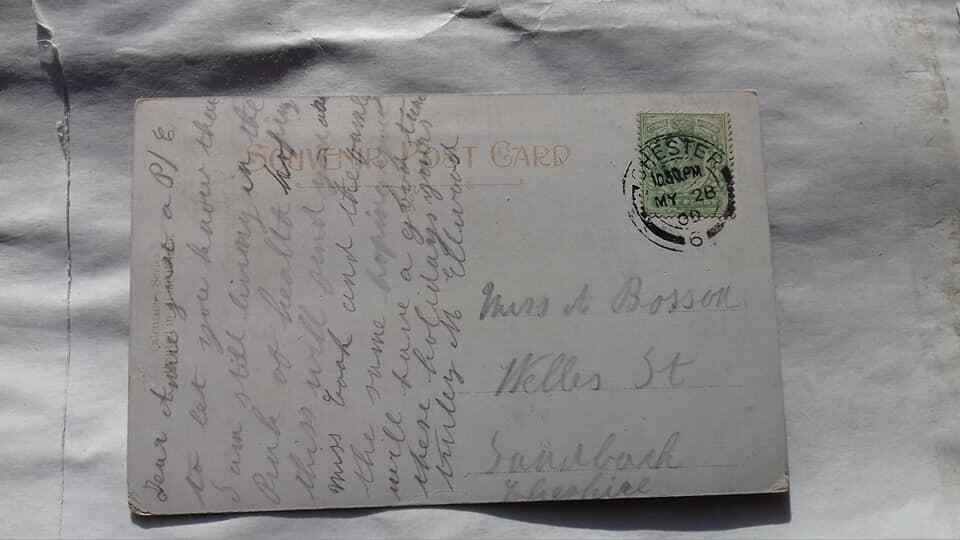 SOUVENIR POST CARD
CHESTER
10.30 PM
MY 28
09
6
Dear Annie just a P/C
to let you know that
I am still living in the
Pink of health hoping
this will send you and
Miss Cook and the baby
the same hoping you
will have a good time
these holidays yours
truley M Ellwood
Miss A Bosson
Welles St
Sandbach
Cheshire